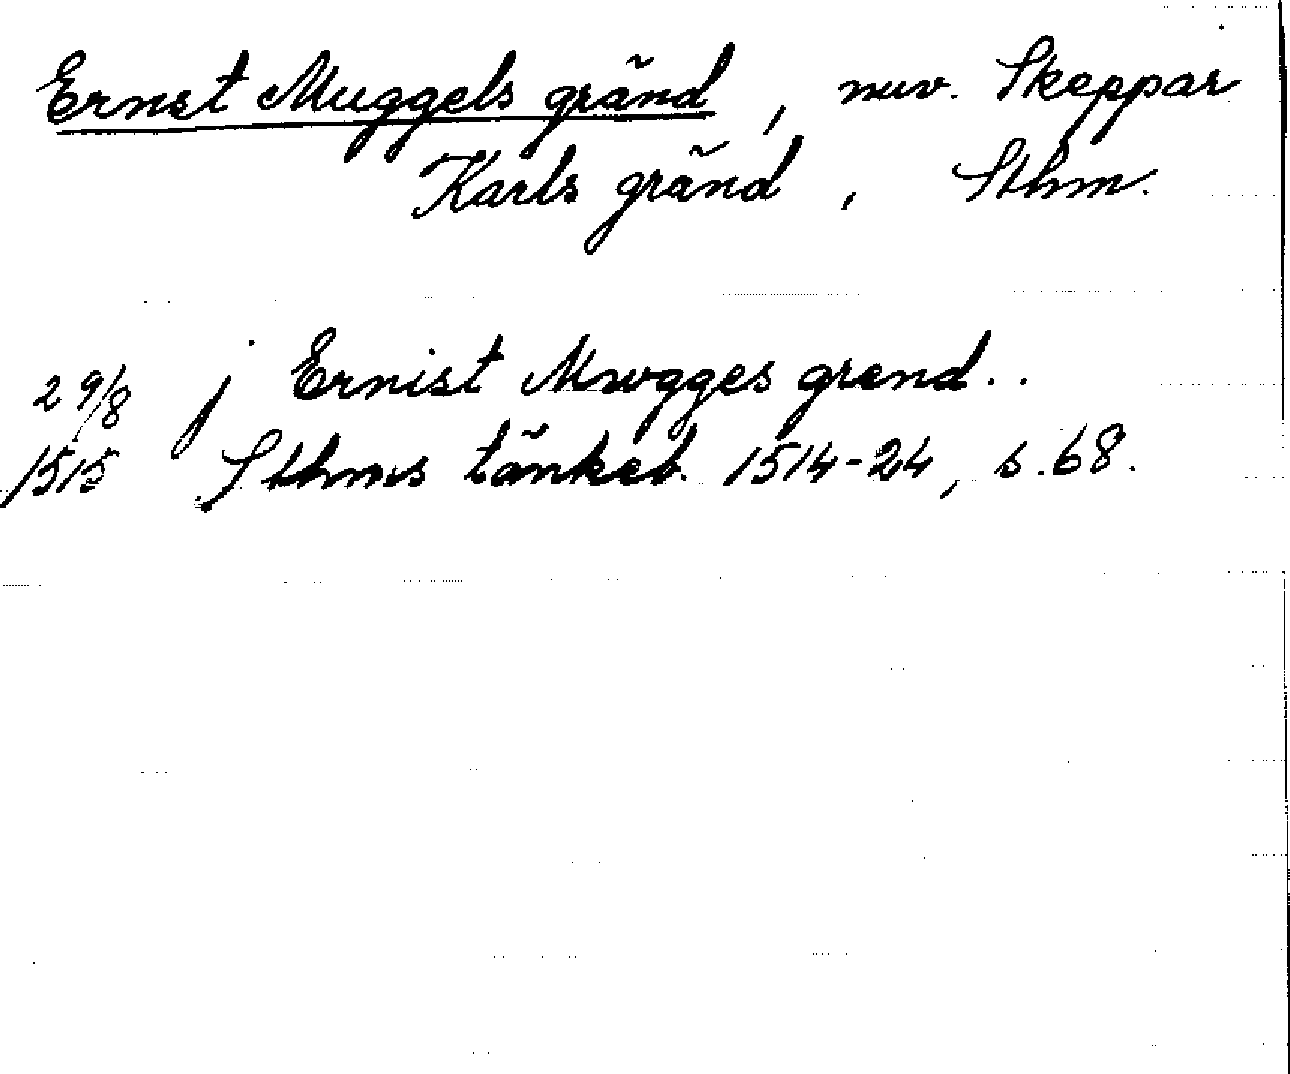 Ernst Muggels gränd, nuv. Skeppar
Karls gränd, Sthm.
29/8 j Ernist Mwgges grend..
1515 Sthms tänkeb. 1514-24, s. 68.